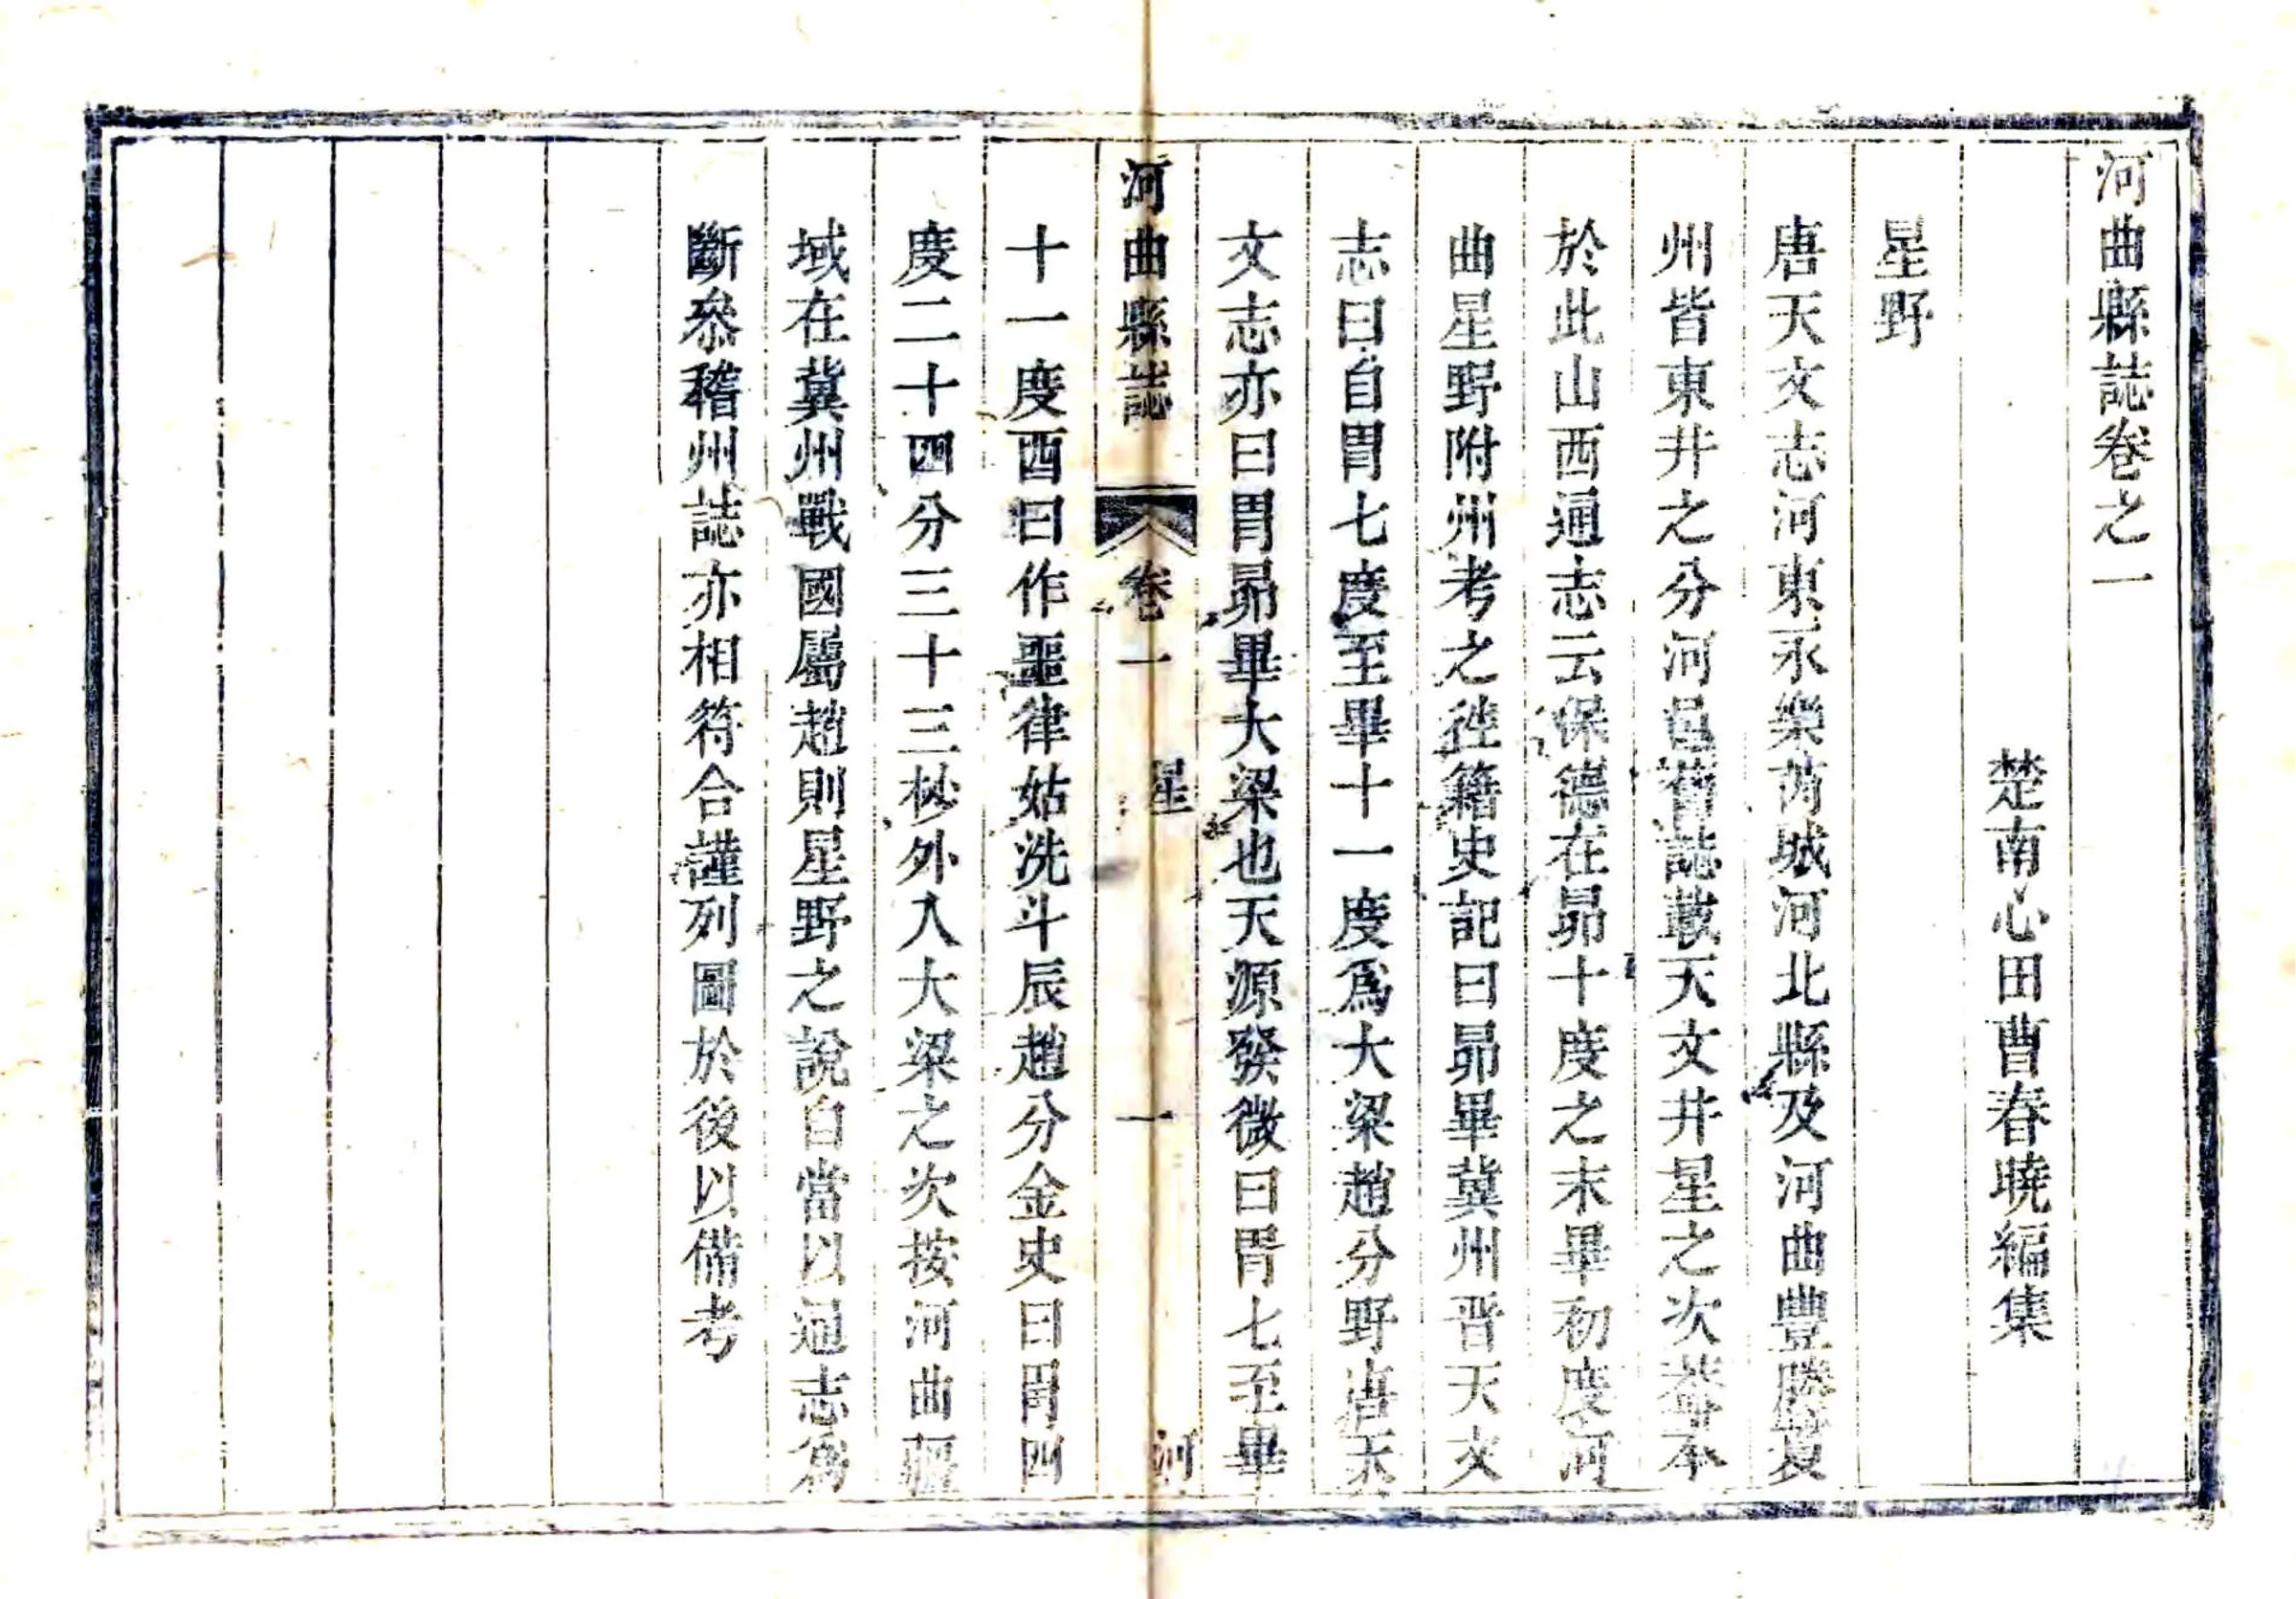 河曲縣誌卷之一
楚南心田曹春曉編集
星野
唐天文志河東永樂芮城河北縣及河曲豐勝夏
州皆東井之分河邑舊誌載天文井星之次葢本
於此山西通志云保德在昴十度之末畢初度河
曲星野附州考之徃籍史記曰昴畢冀州晋天文
志曰自胃七度至畢十一度爲大梁趙分野唐天
文志亦曰胃昴畢大梁也天源發微曰胃七至畢
河曲縣誌 卷一 星 一
十一度酉曰作噩律姑洗斗辰趙分金史曰胃四
度二十四分三十三秒外入大梁之次按河曲疆
域在冀州戰國屬趙則星野之說自當以通志爲
斷叅稽州誌亦相符合謹列圖於後以備考